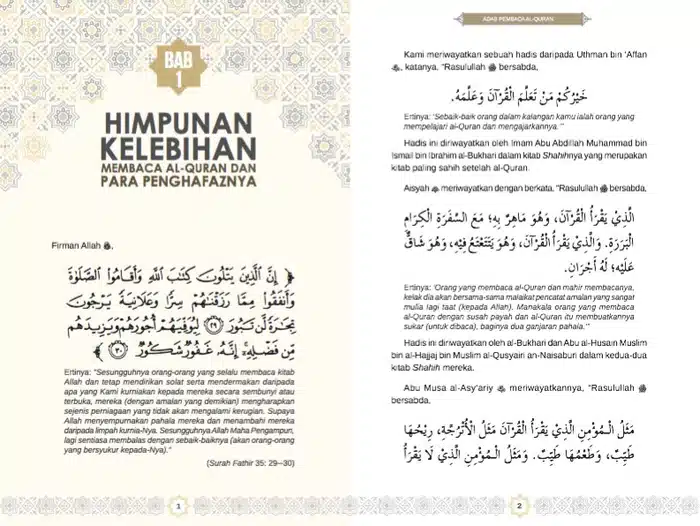 BAB
1
HIMPUNAN
KELEBIHAN
MEMBACA AL-QURAN DAN
PARA PENGHAFAZNYA
Firman Allah ﷻ,
﴿ إِنَّ ٱلَّذِينَ يَتْلُونَ كِتَٰبَ ٱللَّهِ وَأَقَامُوا۟ ٱلصَّلَوٰةَ
وَأَنفَقُوا۟ مِمَّا رَزَقْنَٰهُمْ سِرًّا وَعَلَانِيَةً يَرْجُونَ
تِجَٰرَةً لَّن تَبُورَ ﴿٢٩﴾ لِيُوَفِّيَهُمْ أُجُورَهُمْ وَيَزِيدَهُم
مِّن فَضْلِهِۦٓ ۚ إِنَّهُۥ غَفُورٌ شَكُورٌ ﴿٣٠﴾ ﴾
Ertinya: “Sesungguhnya orang-orang yang selalu membaca kitab
Allah dan tetap mendirikan solat serta mendermakan daripada
apa yang Kami kurniakan kepada mereka secara sembunyi atau
terbuka, mereka (dengan amalan yang demikian) mengharapkan
sejenis perniagaan yang tidak akan mengalami kerugian. Supaya
Allah menyempurnakan pahala mereka dan menambahi mereka
daripada limpah kurnia-Nya. Sesungguhnya Allah Maha Pengampun,
lagi sentiasa membalas dengan sebaik-baiknya (akan orang-orang
yang bersyukur kepada-Nya).”
(Surah Fathir 35: 29–30)
1
ADAB PEMBACA AL-QURAN
Kami meriwayatkan sebuah hadis daripada Uthman bin ‘Affan
, katanya, “Rasulullah ﷺ bersabda,
خَيْرُكُمْ مَنْ تَعَلَّمَ الْقُرْآنَ وَعَلَّمَهُ.
Ertinya: ‘Sebaik-baik orang dalam kalangan kamu ialah orang yang
mempelajari al-Quran dan mengajarkannya.’”
Hadis ini diriwayatkan oleh Imam Abu Abdillah Muhammad bin
Ismail bin Ibrahim al-Bukhari dalam kitab Shahihnya yang merupakan
kitab paling sahih setelah al-Quran.
Aisyah meriwayatkan dengan berkata, “Rasulullah ﷺ bersabda,
الَّذِي يَقْرَأُ الْقُرْآنَ، وَهُوَ مَاهِرٌ بِهِ؛ مَعَ السَّفَرَةِ الْكِرَامِ
الْبَرَرَةِ. وَالَّذِي يَقْرَأُ الْقُرْآنَ، وَهُوَ يَتَتَعْتَعُ فِيْهِ، وَهُوَ شَاقٌّ
عَلَيْهِ؛ لَهُ أَجْرَانِ.
Ertinya: ‘Orang yang membaca al-Quran dan mahir membacanya,
kelak dia akan bersama-sama malaikat pencatat amalan yang sangat
mulia lagi taat (kepada Allah). Manakala orang yang membaca
al-Quran dengan susah payah dan al-Quran itu membuatkannya
sukar (untuk dibaca), baginya dua ganjaran pahala.’”
Hadis ini diriwayatkan oleh al-Bukhari dan Abu al-Husain Muslim
bin al-Hajjaj bin Muslim al-Qusyairi an-Naisaburi dalam kedua-dua
kitab Shahih mereka.
Abu Musa al-Asy’ariy meriwayatkannya, “Rasulullah ﷺ
bersabda,
مَثَلُ الْـمُؤْمِنِ الَّذِي يَقْرَأُ الْقُرْآنَ مَثَلُ الْأُتْرُجَّةِ، رِيْحُهَا
طَيِّبٌ، وَطَعْمُهَا طَيِّبٌ. وَمَثَلُ الْـمُؤْمِنِ الَّذِي لَا يَقْرَأُ
2